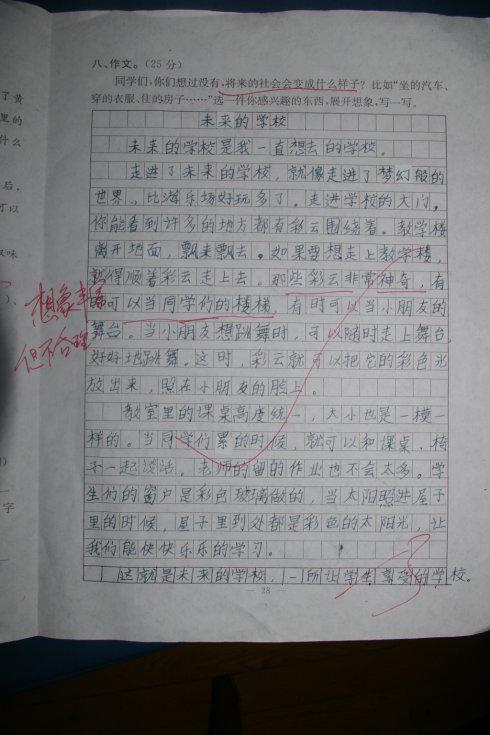 八、作文。(25 分)
同学们,你们想过没有,将来的社会会变成什么样子?比如“坐的汽车、
穿的衣服、住的房子……”选一件你感兴趣的东西,展开想象,写一写。
未来的学校
未来的学校是我一直想去的学校。
走进了未来的学校,就像走进了梦幻般的
世界,比游乐场好玩多了。走进学校的大门,
你能看到许多的地方都有彩云围绕着。教学楼
离开地面,飘来飘去。如果要想走上教学楼,
就得顺着彩云走上去。那些彩云非常神奇,有
时可以当同学们的楼梯,有时可以当小朋友的
舞台。当小朋友想跳舞时,可以随时走上舞台,
好好地跳舞。这时,彩云就可以把它的彩色光
放出来,照在小朋友的脸上。
教室里的课桌高度统一,大小也是一模一
样的。当同学们累的时候,就可以和课桌、椅
子一起谈话。老师的留的作业也不会太多。学
生们的窗户是彩色玻璃做的,当太阳照进屋子
里的时候,屋子里到处都是彩色的太阳光,让
我们能快快乐乐的学习。
这就是未来的学校,一所让学生享受的学校。
想象丰富
但不合理
— 28 —
了黄
里的
什么
后,
可以
味
)、
字